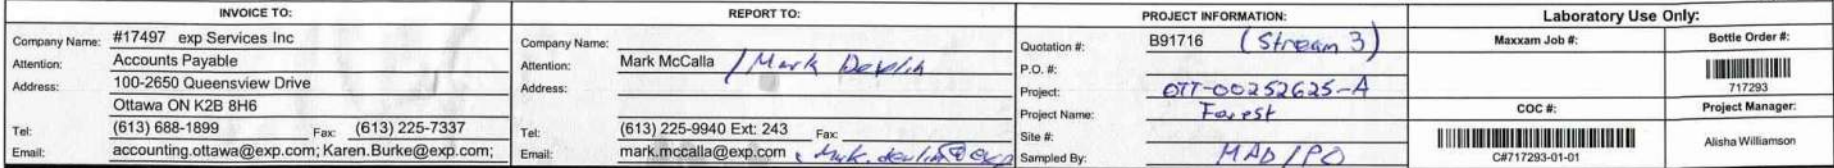 INVOICE TO:
Company Name: #17497 exp Services Inc
Attention: Accounts Payable
Address: 100-2650 Queensview Drive
Ottawa ON K2B 8H6
Tel: (613) 688-1899 Fax: (613) 225-7337
Email: accounting.ottawa@exp.com; Karen.Burke@exp.com;
REPORT TO:
Company Name:
Attention: Mark McCalla / Mark Devlin
Address:
Tel: (613) 225-9940 Ext: 243 Fax:
Email: mark.mccalla@exp.com, Mark.devlin@exp
PROJECT INFORMATION:
Quotation #: B91716 (Stream 3)
P.O. #:
Project: OTT-00252625-A
Project Name: Forest
Site #:
Sampled By: MAD/PO
Laboratory Use Only:
Maxxam Job #:
Bottle Order #:
717293
COC #:
Project Manager:
C#717293-01-01
Alisha Williamson